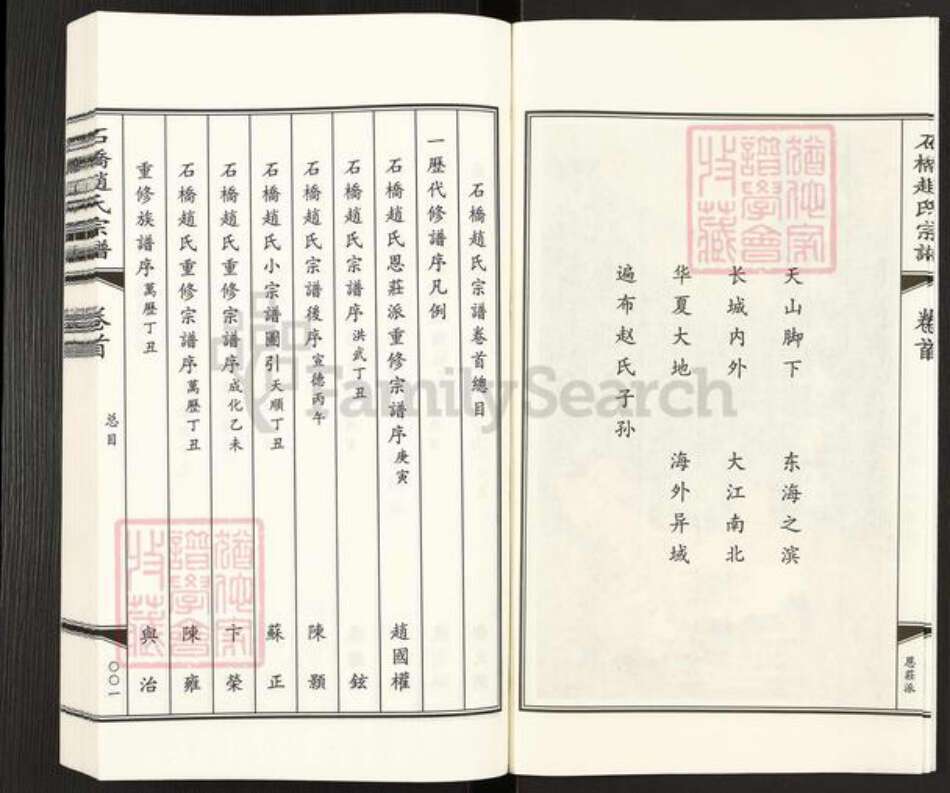 石橋趙氏宗譜
卷首
恩莊派
天山脚下 东海之滨
长城内外 大江南北
华夏大地 海外异域
遍布赵氏子孙
石橋趙氏宗譜卷首總目
一歷代修譜序凡例
石橋趙氏恩莊派重修宗譜序庚寅 趙國權
石橋趙氏宗譜序洪武丁丑 鉉
石橋趙氏宗譜後序宣德丙午 陳顥
石橋趙氏小宗譜圖引天順丁丑 蘇正
石橋趙氏重修宗譜序成化乙未 卞榮
石橋趙氏重修宗譜序萬歷丁丑 陳雍
重修族譜序萬歷丁丑 與治
石橋趙氏宗譜
卷首
总目
〇〇一
FamilySearch